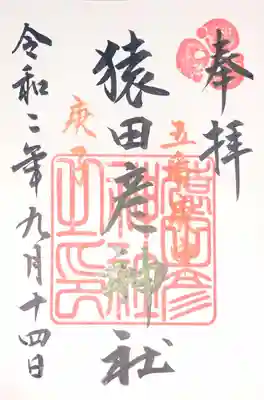 奉拝
猿田彦神社
庚子
令和二年九月十四日